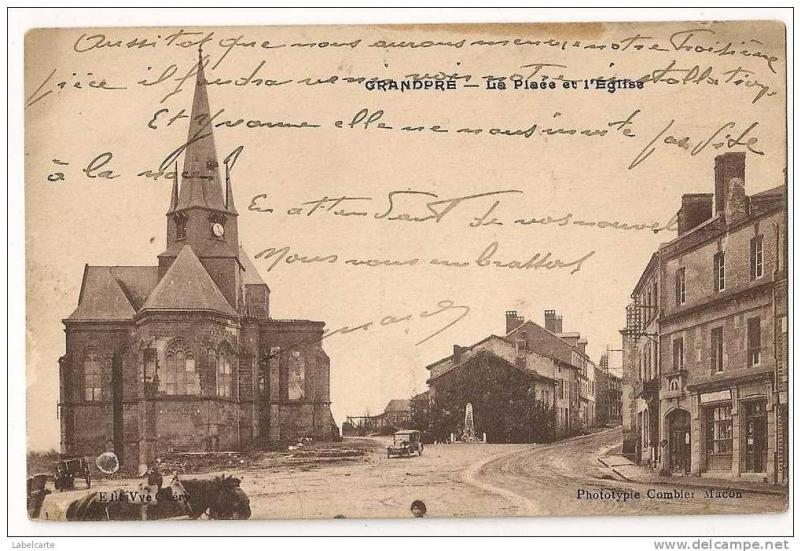 Aussitot que nous aurons meublé notre troisième
pièce il faudra venir voir notre installation
GRANDPRÉ — La Place et l'Église
Et Yvonne elle ne nous invite pas vite
à la noce
En attendant de vos nouvel
Nous vous embrassons
Edit Vve Chéry
Phototypie Combier Macon
Labelcarte
http://www.delcampe.net